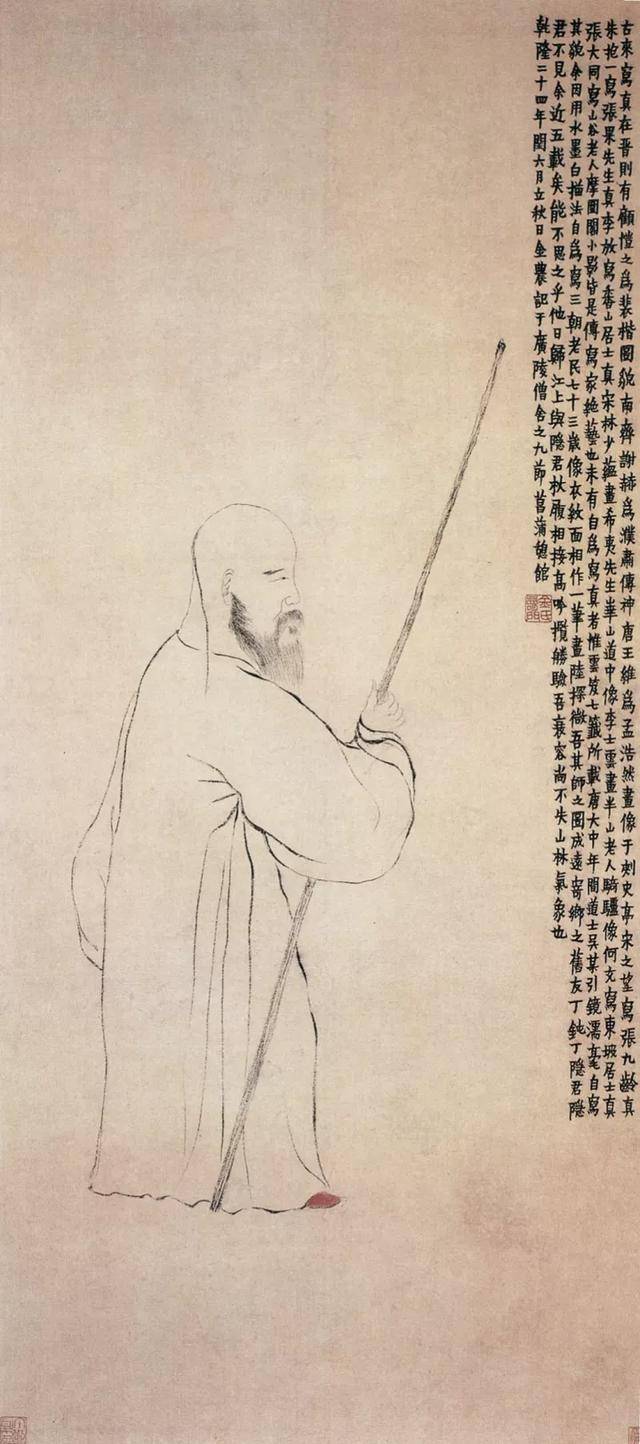 古來寫真在晋則有顧愷之爲裴楷圖貌南齊謝赫爲濮肅傳神唐王維爲孟浩然畫像于刺史亭宋之望寫張九齡真
朱抱一寫張果先生真李放寫香山居士真宋林少蘊畫希夷先生華山道中像李士雲畫半山老人騎驢像何充寫東坡居士真
張大同寫山谷老人摩圍閣小影皆是傳寫家絶藝也未有自爲寫真者惟雲笈七籤所載唐大中年間道士吴某引鏡濡毫自寫
其貌余因用水墨白描法自爲寫三朝老民七十三歲像衣紋面相作一筆畫陸探微吾其師之圖成遠寄鄉之舊友丁鈍丁隱君隱
君不見余近五載矣能不思之乎他日歸江上與隱君杖履相接高吟攬勝驗吾衰容尚不失山林氣象也
乾隆二十四年閏六月立秋日金農記于廣陵僧舍之九節菖蒲憩館